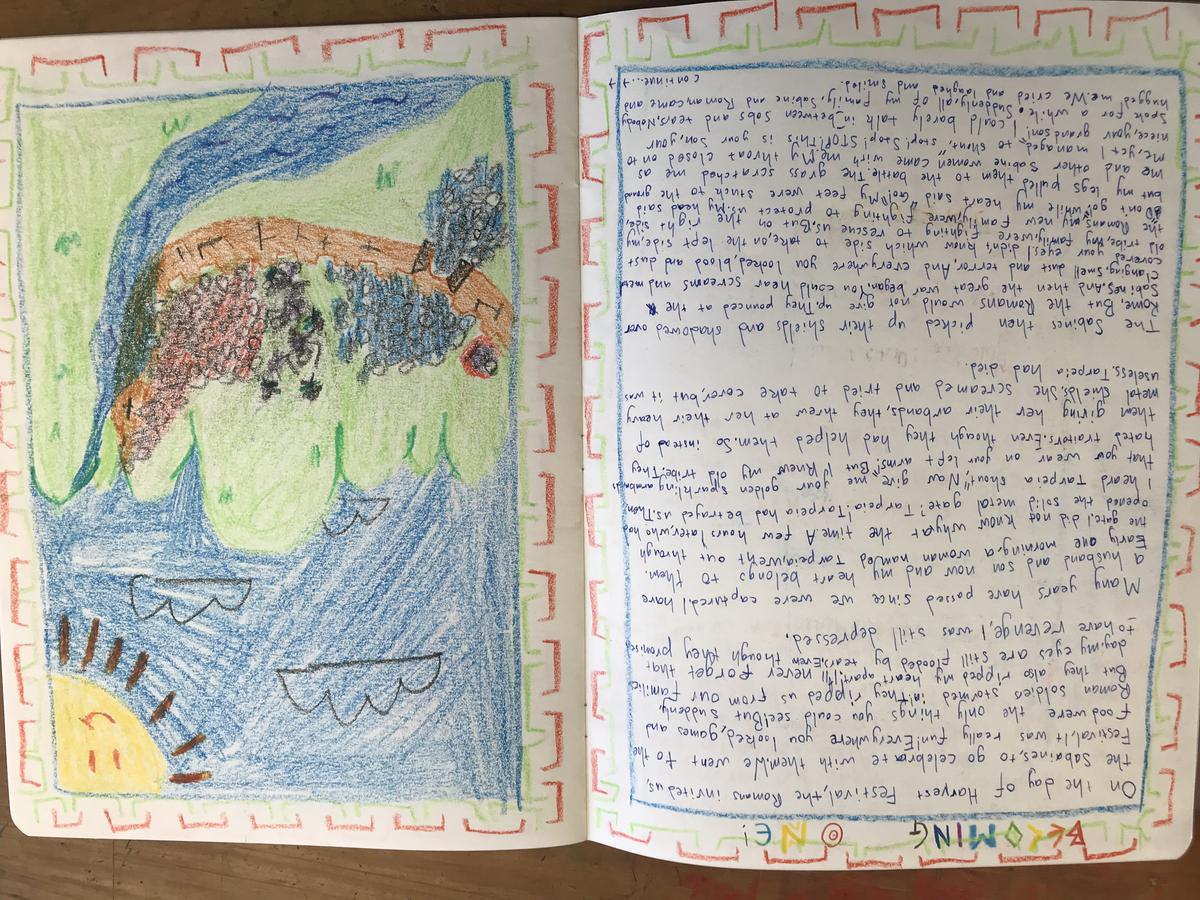 BECOMING ONE!
On the day of Harvest Festival, the Romans invited us,
the Sabaines, to go celebrate with them. We went to the
Festival. It was really fun! Everywhere you looked, games, and
food were the only things you could see! But suddenly,
Roman soldiers stormed in! They ripped us from our families
But they also ripped my heart apart! I'll never forget that
day, my eyes are still flooded by tears. Even though they promised
to have revenge, I was still depressed.
Many years have passed since we were captured. I have
a husband and son now and my heart belongs to them.
Early one morning, a woman named Tarpeia, went out through
the gate. I did not know why at the time. A few hours later, she had
opened the solid metal gate? Tarpeia! Tarpeia had betrayed us. Then
I heard Tarpeia shout, "Now give me your golden sparkling armbands
that you wear on your left arms!" But I knew my old tribe. They
hated traitors. Even though they had helped them. So instead of
them giving her their armbands, they threw at her their heavy
metal shields. She screamed and tried to take cover, but it was
useless. Tarpeia had died.
The Sabines then picked up their shields and shadowed over
Rome. But the Romans would not give up. They pounced at the
Sabines. And then the great war began. You could hear screams and metal
clanging. Smell dust and terror. And everywhere you looked, blood and dust
covered your eyes. I didn't know which side to take, on the left side, my
old tribe, my family, were fighting to rescue us. But on the right side,
the Romans, my new family, were fighting to protect us. My head said
"Don't go!" while my heart said "Go!" My feet were stuck to the ground
but my legs pulled them to the battle. The grass scratched me as
me and other Sabine women came with me. My throat closed on to
me, yet I managed to shout, "Stop! Stop! STOP! This is your son, your
niece, your grandson!" I could barely talk in between sobs and tears. Nobody
spoke for a while. Suddenly, all of my family, Sabine and Roman, came and
hugged me. We cried and laughed and smiled.
Continue...→→